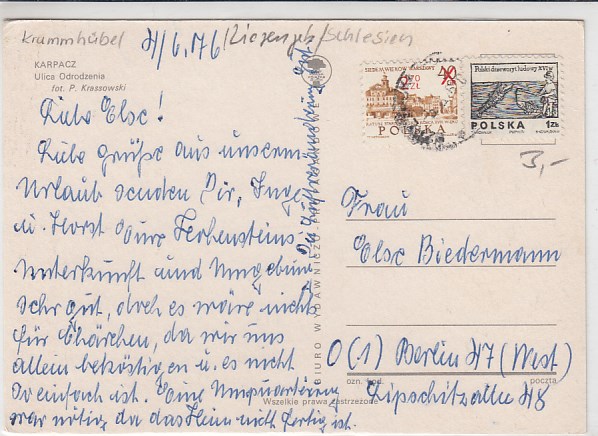 Krummhübel
4/6.76
/Riesengeb/Schlesien
KARPACZ
Ulica Odrodzenia
fot. P. Krassowski
Liebe Else!
Liebe Grüße aus unserm
Urlaub senden Dir, Inge
u. Horst
Unterkunft und Umgebung
sehr gut, doch es wäre nicht
für Clärchen, da wir uns
allein beköstigen u. es nicht
so einfach ist. Eine Umquartierung
wär nötig da das Heim nicht fertig ist.
BIURO WYDAWNICZE
SIEDEM WIEKÓW WARSZAWY
40
ZŁ
POLSKA
Polski drzeworyt ludowy XVI w.
POLSKA 1Zł
3,-
Frau
Else Biedermann
O (1) Berlin 47 (West)
Lipschitzallee 48
ozn. kod.
poczta
Wszelkie prawa zastrzeżone